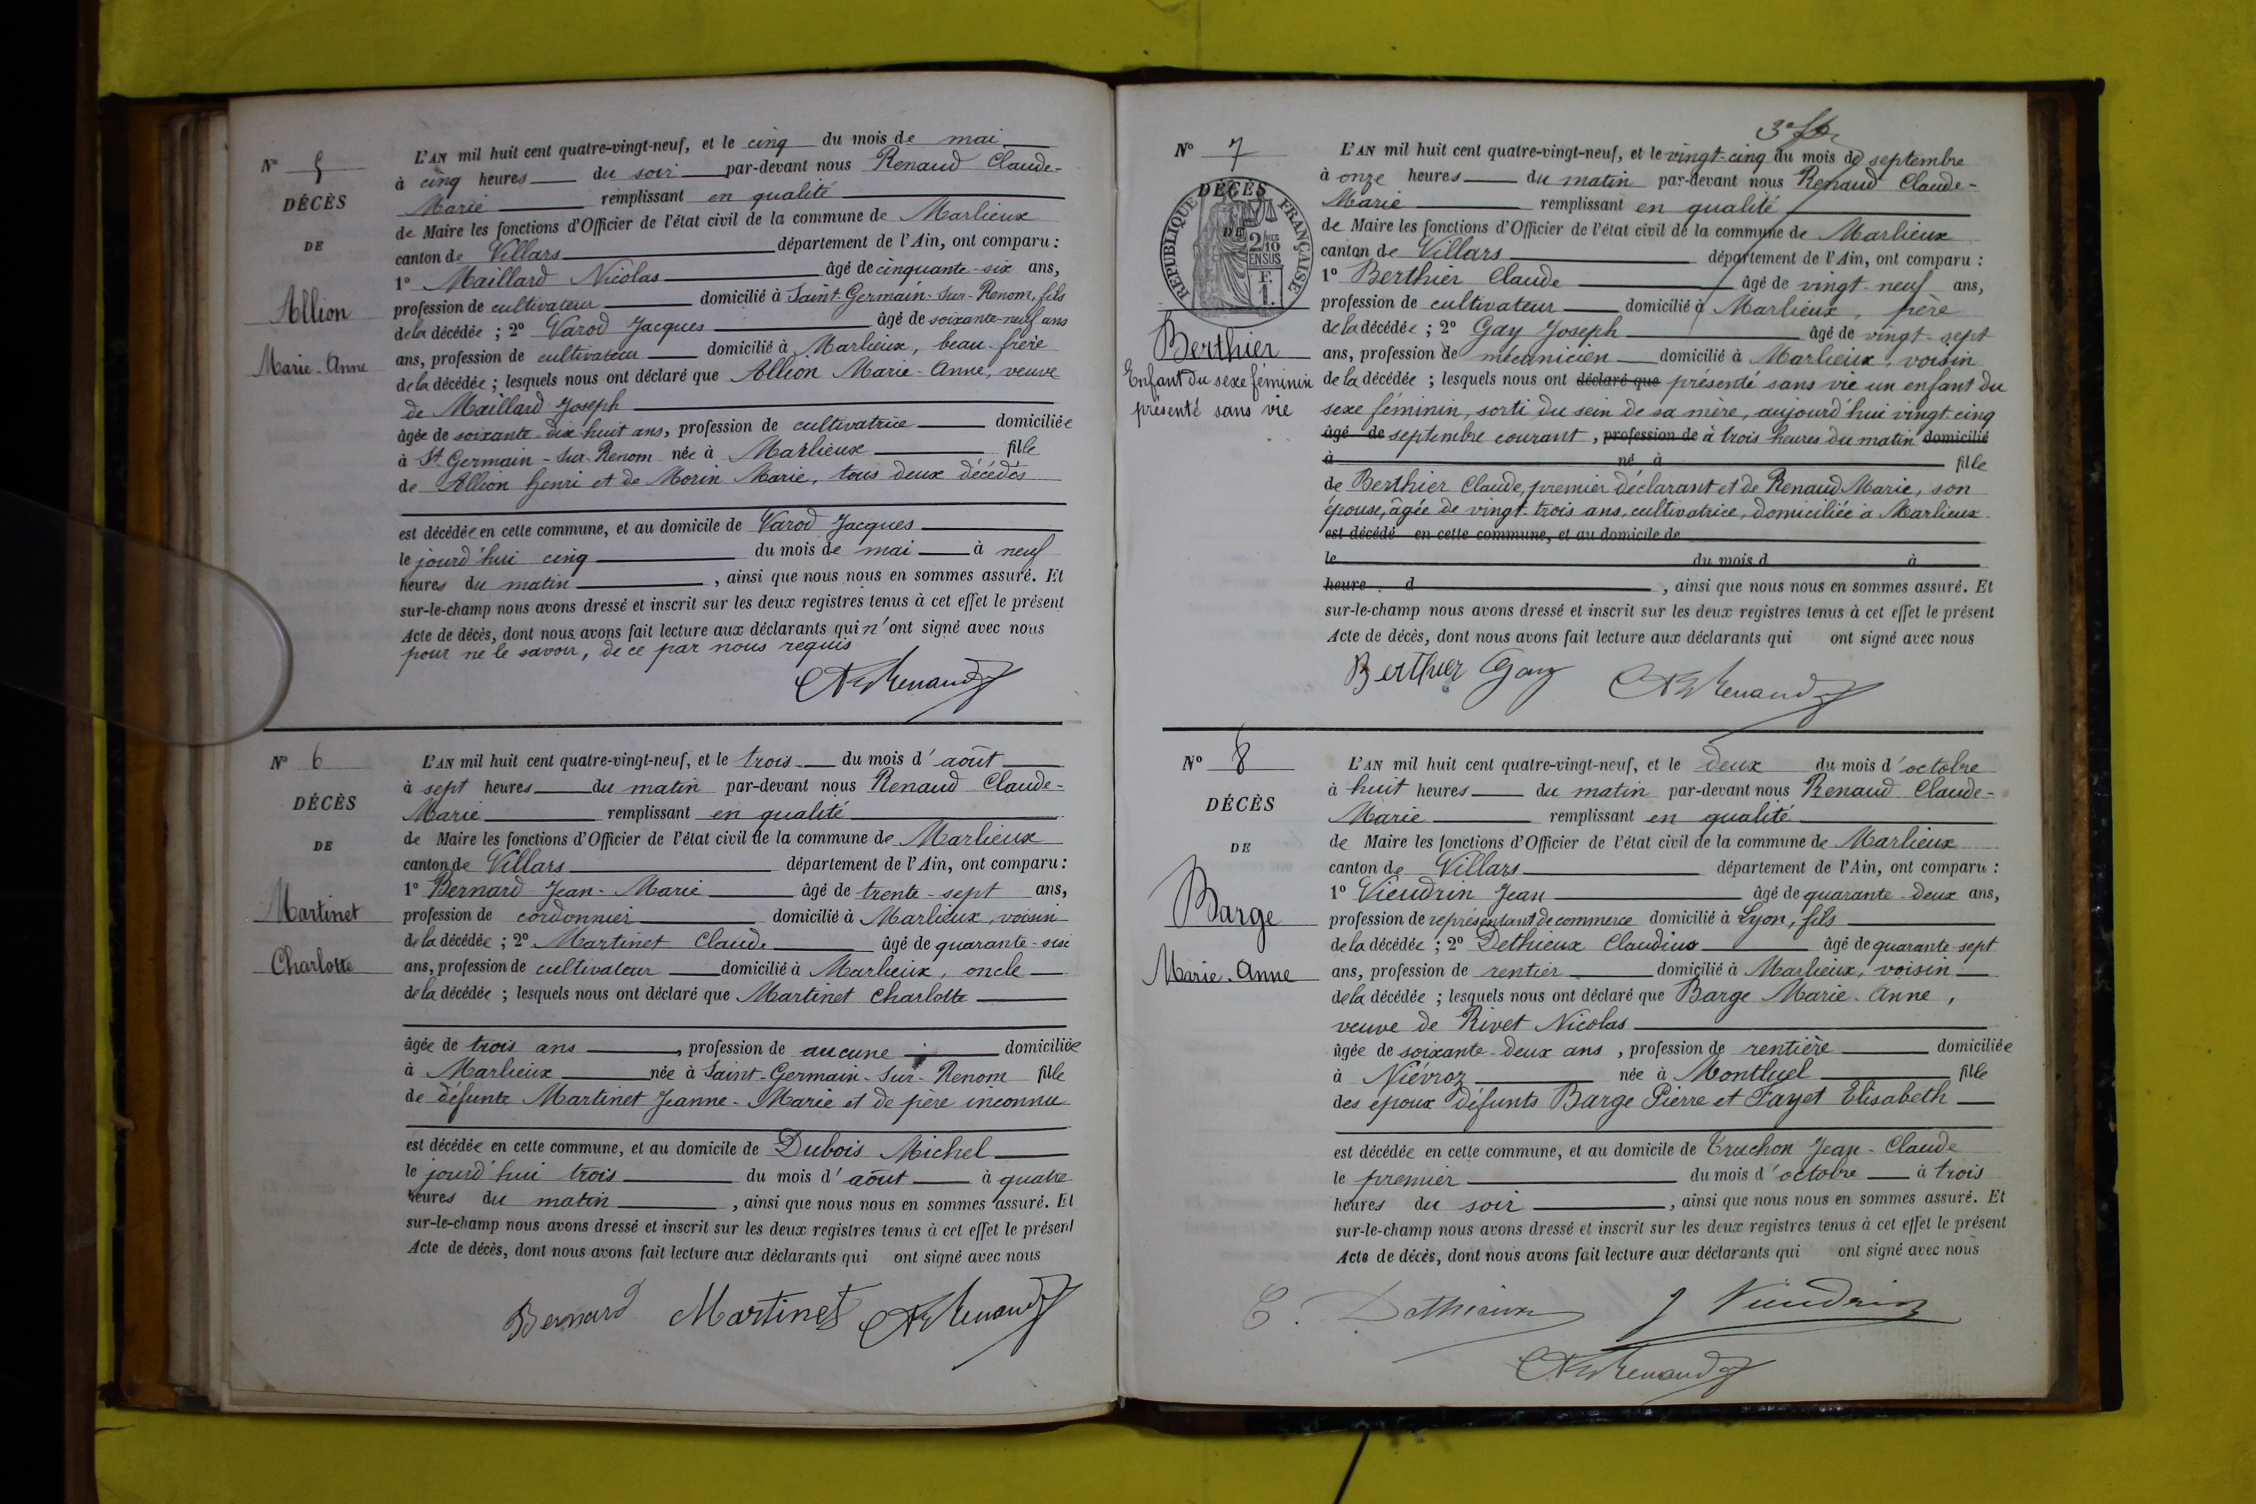 N° 5
DÉCÈS
DE
Allion
Marie-Anne
L'AN mil huit cent quatre-vingt-neuf, et le cinq du mois de mai
à cinq heures du soir par-devant nous Renaud Claude-
Marie remplissant en qualité
de Maire les fonctions d'Officier de l'état civil de la commune de Marlieux
canton de Villars département de l'Ain, ont comparu :
1° Maillard Nicolas âgé de cinquante-six ans,
profession de cultivateur domicilié à Saint-Germain-sur-Renom, fils
de la décédée ; 2° Varod Jacques âgé de soixante-neuf ans
ans, profession de cultivateur domicilié à Marlieux, beau-frère
de la décédée ; lesquels nous ont déclaré que Allion Marie-Anne, veuve
de Maillard Joseph
âgée de soixante-dix huit ans, profession de cultivatrice domiciliée
à St Germain-sur-Renom née à Marlieux fille
de Allion Henri et de Morin Marie, tous deux décédés
est décédée en cette commune, et au domicile de Varod Jacques
le jourd'hui cinq du mois de mai à neuf
heures du matin, ainsi que nous nous en sommes assuré. Et
sur-le-champ nous avons dressé et inscrit sur les deux registres tenus à cet effet le présent
Acte de décès, dont nous avons fait lecture aux déclarants qui n'ont signé avec nous
pour ne le savoir, de ce par nous requis
Renaud
N° 6
DÉCÈS
DE
Martinet
Charlotte
L'AN mil huit cent quatre-vingt-neuf, et le trois du mois d'août
à sept heures du matin par-devant nous Renaud Claude-
Marie remplissant en qualité
de Maire les fonctions d'Officier de l'état civil de la commune de Marlieux
canton de Villars département de l'Ain, ont comparu :
1° Bernard Jean-Marie âgé de trente-sept ans,
profession de cordonnier domicilié à Marlieux, voisin
de la décédée ; 2° Martinet Claude âgé de quarante-six
ans, profession de cultivateur domicilié à Marlieux, oncle
de la décédée ; lesquels nous ont déclaré que Martinet Charlotte
âgée de trois ans, profession de aucune domiciliée
à Marlieux née à Saint-Germain-sur-Renom fille
de défunte Martinet Jeanne-Marie et de père inconnu
est décédée en cette commune, et au domicile de Dubois Michel
le jourd'hui trois du mois d'août à quatre
heures du matin, ainsi que nous nous en sommes assuré. Et
sur-le-champ nous avons dressé et inscrit sur les deux registres tenus à cet effet le présent
Acte de décès, dont nous avons fait lecture aux déclarants qui ont signé avec nous
Bernard Martinet Renaud
N° 7
DÉCÈS
DE
RÉPUBLIQUE FRANÇAISE
2/10
EN SUS
F.
1.
Berthier
Enfant du sexe féminin
présenté sans vie
L'AN mil huit cent quatre-vingt-neuf, et le vingt-cinq du mois de septembre
à onze heures du matin par-devant nous Renaud Claude-
Marie remplissant en qualité
de Maire les fonctions d'Officier de l'état civil de la commune de Marlieux
canton de Villars département de l'Ain, ont comparu :
1° Berthier Claude âgé de vingt-neuf ans,
profession de cultivateur domicilié à Marlieux, père
de la décédée ; 2° Gay Joseph âgé de vingt-sept
ans, profession de mécanicien domicilié à Marlieux, voisin
de la décédée ; lesquels nous ont déclaré que présenté sans vie un enfant du
sexe féminin, sorti du sein de sa mère, aujourd'hui vingt-cinq
âgé de septembre courant, profession de à trois heures du matin domicilié
à né à fille
de Berthier Claude, premier déclarant et de Renaud Marie, son
épouse, âgée de vingt-trois ans, cultivatrice, domiciliée à Marlieux
est décédé en cette commune, et au domicile de
le du mois d à
heure d, ainsi que nous nous en sommes assuré. Et
sur-le-champ nous avons dressé et inscrit sur les deux registres tenus à cet effet le présent
Acte de décès, dont nous avons fait lecture aux déclarants qui ont signé avec nous
Berthier Gay Renaud
N° 8
DÉCÈS
DE
Barge
Marie-Anne
L'AN mil huit cent quatre-vingt-neuf, et le deux du mois d'octobre
à huit heures du matin par-devant nous Renaud Claude-
Marie remplissant en qualité
de Maire les fonctions d'Officier de l'état civil de la commune de Marlieux
canton de Villars département de l'Ain, ont comparu :
1° Vieudrin Jean âgé de quarante-deux ans,
profession de représentant de commerce domicilié à Lyon, fils
de la décédée ; 2° Dethieux Claudius âgé de quarante-sept
ans, profession de rentier domicilié à Marlieux, voisin
de la décédée ; lesquels nous ont déclaré que Barge Marie-Anne,
veuve de Rivet Nicolas
âgée de soixante-deux ans, profession de rentière domiciliée
à Niévroz née à Montluel fille
des époux défunts Barge Pierre et Fayet Elisabeth
est décédée en cette commune, et au domicile de Truchon Jean-Claude
le premier du mois d'octobre à trois
heures du soir, ainsi que nous nous en sommes assuré. Et
sur-le-champ nous avons dressé et inscrit sur les deux registres tenus à cet effet le présent
Acte de décès, dont nous avons fait lecture aux déclarants qui ont signé avec nous
C. Dethieux J Vieudrin
Renaud